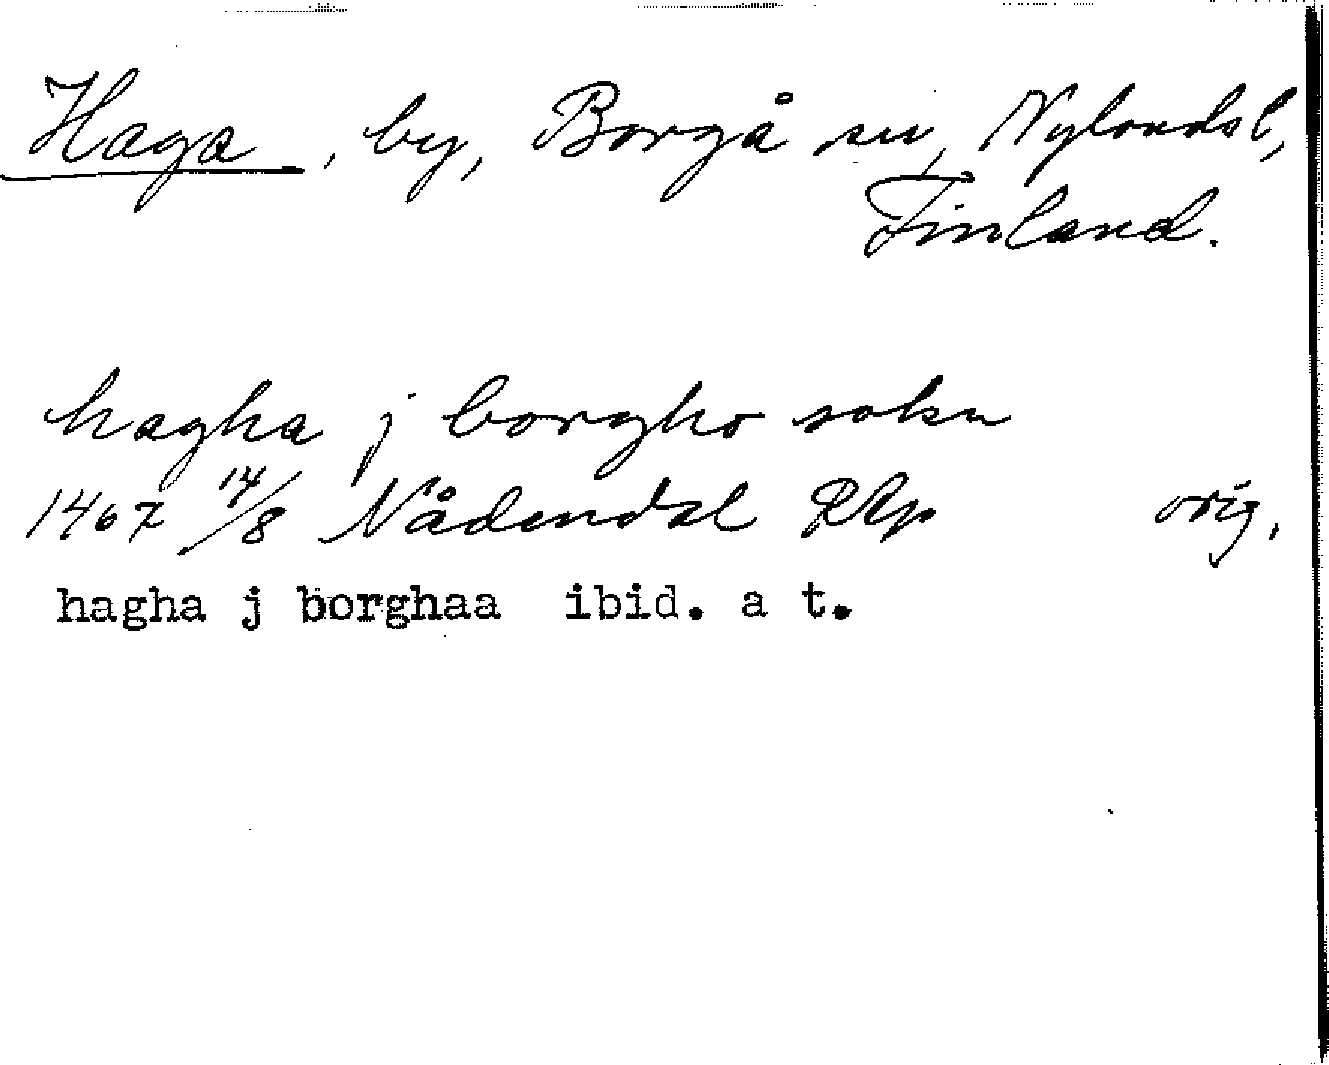 Haga, by, Borgå sn, Nylands l,
Finland.
hagha j borgho sokn
1467 14/8 Nådendal RAp orig.
hagha j borghaa ibid. a t.